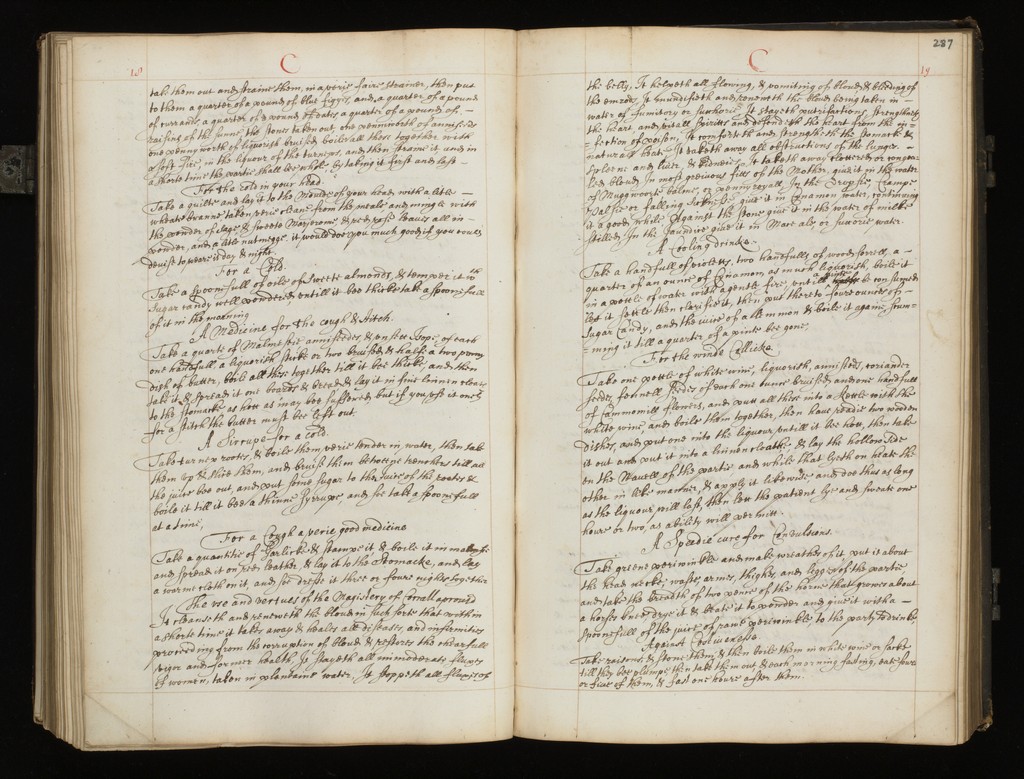 18
C
take them out and straine them, in a verie faire strainer, then put
to them a quarter of a pound of blue figgs, and a quarter of a pound
of currans, a quarter of a pound of dates a quarter of a pound of
raisins of the sunne, the stones taken out, one pennworth of anniseeds
one pennyworth of liquorish bruised boile all these together with
a soft fire in the liquour of the turneps, and then straine it, and in
a shorte time the partie shall bee whole, by taking it first and last
For the cold in your head.
Take a quilte and lay it to the Moulde of your head, with a litle
wheate branne taken verie cleane from the meale and mingle with
the powder of sage & sweete Marjerome & red rose leaves all in
powder, and a litle nuttmegge, it would doe you much good if you would
devise to weare it day & night.
For a Cold.
Take a spoonfull of oile of sweete almonds, & temper it wth
Sugar candy well powdered untill it bee thicke take a spoonefull
of it in the morning
A Medicine for the cough & stitch.
Take a quarte of Malmesie anniseedes, & ensett Isop, of each
one handfull, a liquorish sticke or two bruised & halfe a two penny
dish of butter, boile all these together till it bee thicke, and then
take it & spread it one boardes & bread & lay it in fine linnen cloate
to the stomacke as hott as may bee suffered, but if you use it onely
for a stitch the butter must bee left out.
A Sirrupe for a cold.
Take turnep rootes, & boile them verie tender in water, then take
them up & slice them, and bruise them betweene trenchers till all
the juice bee out, and put some sugar to the juice of the rootes &
boile it till it bee a thinne Syrrupe, and soe take a spoonefull
at a time,
For a Cough a verie good medicine
Take a quantitie of Garlicke & stampe it & boile it in
and spread it on red leather, & lay it to the Stomacke, and lay
a warme cloth on it, and soe dresse it three or foure nights together
The use and vertues of the Magistery of Corall aproved
It cleanseth and reneweth the bloud in such sorte that within
a shorte time it takes away & heales all diseases, and infirmities
proceeding from the corruption of bloud & restores the chearfull
vigor and former health It stayeth all immoderate fluxes
of women, taken in plantaine water, It stoppeth all fluxes of
287
C
19
the belly, It helpeth all flowing, & vomiting of bloud, & bleeding of
the emrods, It mundifieth and reneweth the bloud being taken in
water of fumitory or succhorie It stayeth putrifactions, strengthens
the heart and vitall spirits and defends the heart from the in-
=fection of poison, It comforts and strengtheth the stomack &
naturall heate It taketh away all obstructions of the lunges
Spleene and liver & kidneies, It taketh away clottered or congea-
led bloud, In most grievous fits of the Mother, give it in the water
of Muggworte balme, or pennyroyall, In the Dropsie Crampe
Palsie or falling sicknesse give it in Cinamon water, continuing
it a good while Against the stone give it in the water of milke
stilled, In the Jaundise give it in Muscadly or succorie water.
A Cooling drincke
Take a handfull of violetts, two handfulls of wood sorrell, a
quarter of an ounce of Cinamon, as much liquorish, boile it
in a pottle of water with a gentle fire, untill a pinte be consumed
lett it settle then clarifie it, then put thereto foure ounces of
Sugar Candy, and the juice of a lemmon & boile it againe, scum-
=ming it till a quarter of a pinte bee gone,
For the winde Collicke
Take one pottle of white wine, liquorish, anniseeds, coriander
seedes, fennell seedes of each one ounce bruised, and one handfull
of cammomill flowers, and putt all these into a kettle with the
white wine, and boile them together, then have readie two wooden
dishes, and put one into the liquour untill it bee hott, then take
it out and put it into a linnen cloathe & lay the hollow side
on the Navell of the partie and while that lyeth on heate the
other in like manner, & apply it likewise, and doe thus as long
as the liquour will last, then lett the patient lye and sweate one
houre or two, as ability will permitt.
A Speedie cure for Convulsions.
Take greene periwinkle and make wreathes of it put it about
the head necke, waste, armes, thighes, and leggs of the partie
and take the breadth of two pence of the horne that growes about
a horses knee drye it & beate it to powder and give it with a
spoonefull of the juice of raw periwinkle to the party to drinke,
Against Costivenesse.
Take raisons, & stone them, & then boile them in white wine or sacke
till they bee plumpe then take them out & each morning fasting, eate four
or five of them, & fast one houre after them.